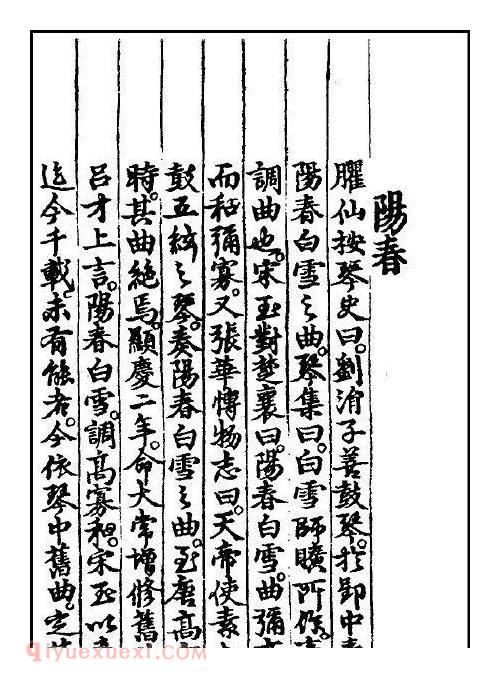 陽春
臞仙按琴史曰。劉涓子善鼓琴。於郢中奏
陽春白雪之曲。琴集曰。白雪師曠所作。商
調曲也。宋玉對楚襄曰。陽春白雪。曲彌高
而和彌寡。又張華博物志曰。天帝使素女
鼓五絃之琴。奏陽春白雪之曲。至唐高
時。其曲絕焉。顯慶二年。命大常增修舊
呂才上言。陽春白雪。調高寡和。宋玉以
迄今千載。未有能者。今依琴中舊曲。定
qiyuexuexi.COM